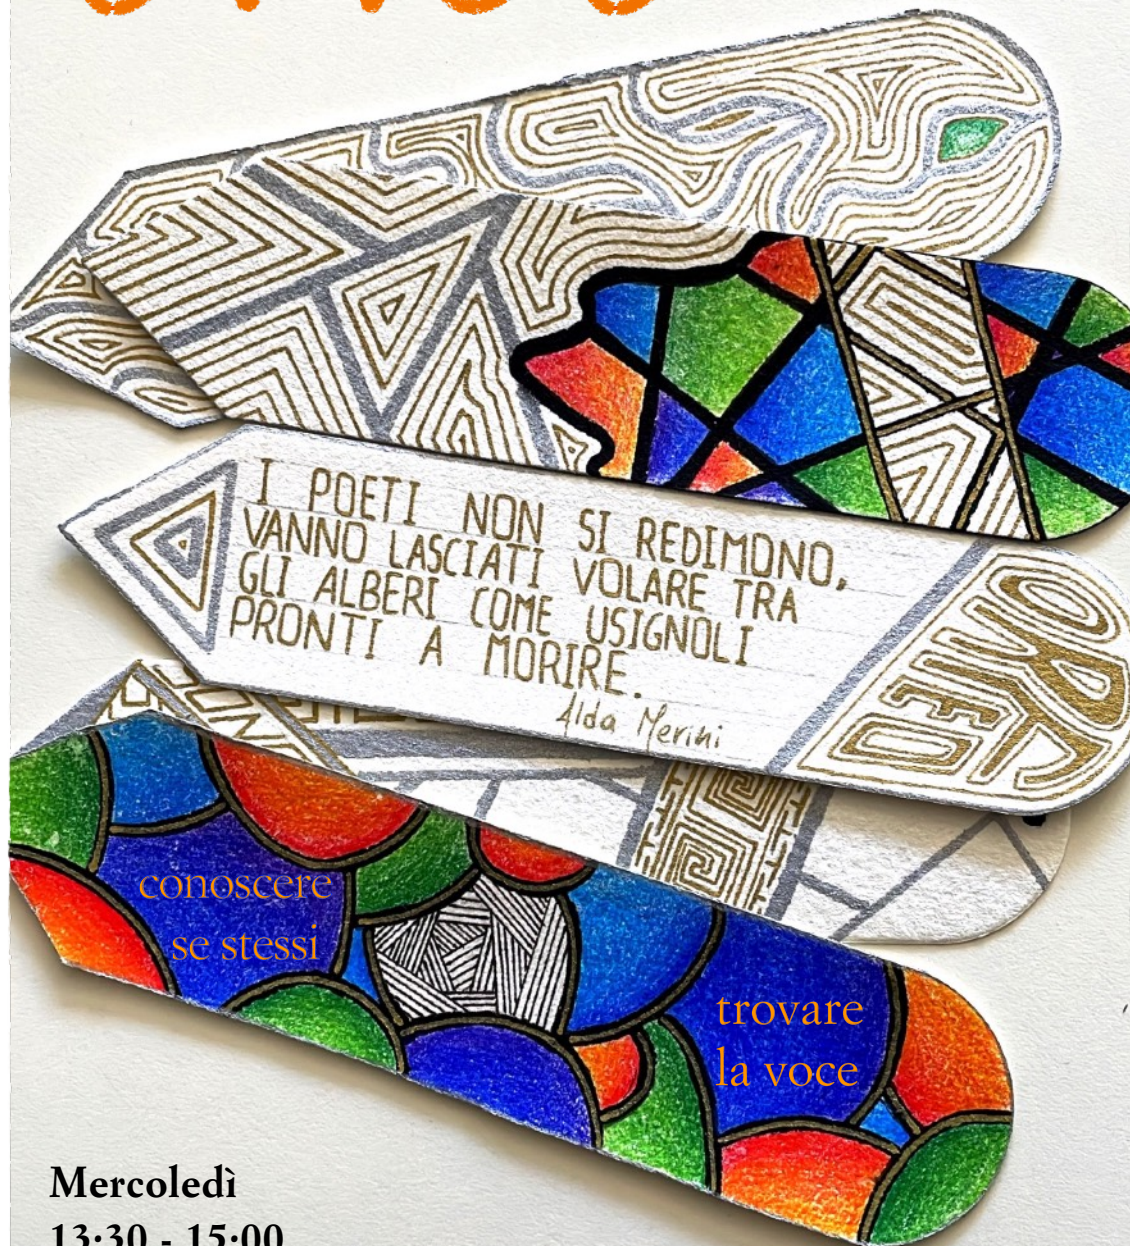 I POETI NON SI REDIMONO,
VANNO LASCIATI VOLARE TRA
GLI ALBERI COME USIGNOLI
PRONTI A MORIRE.
Alda Merini
ORFEO
conoscere
se stessi
trovare
la voce
Mercoledì
13:30 - 15:00